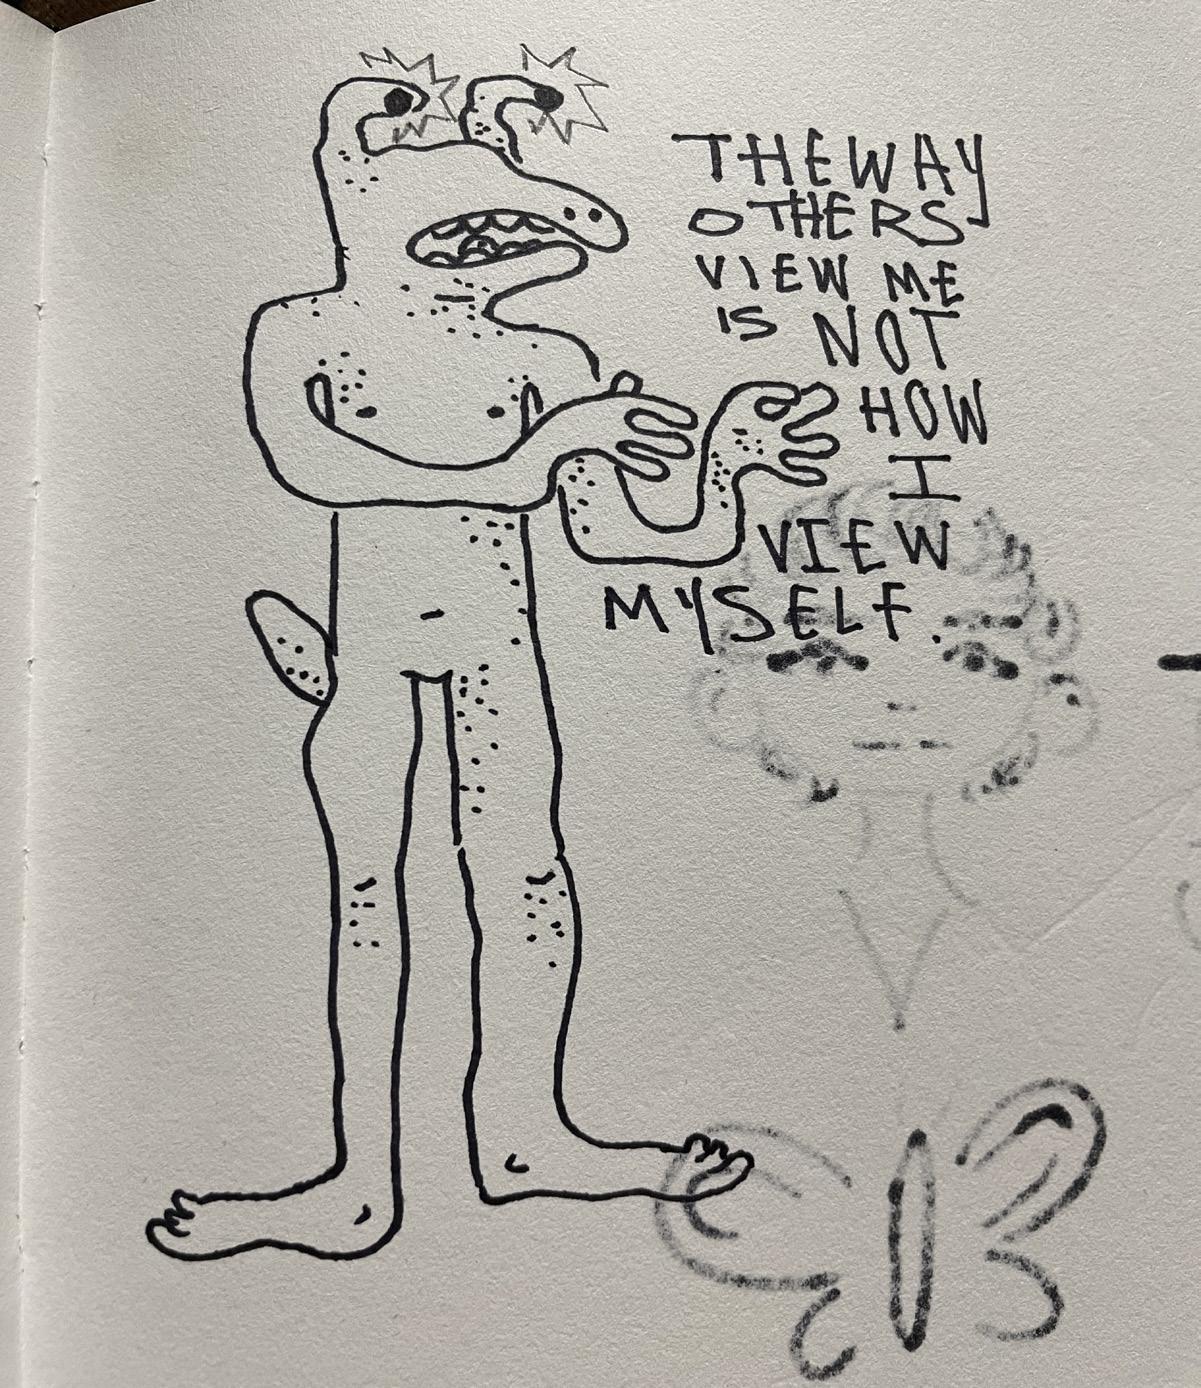 THE WAY
OTHERS
VIEW ME
IS NOT
HOW
I
VIEW
MYSELF.